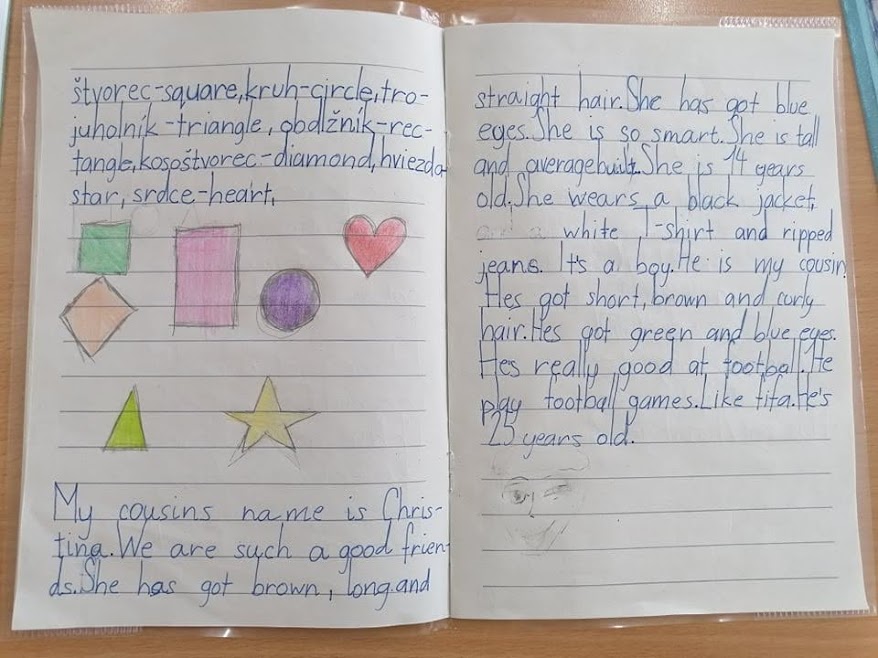 štvorec-square, kruh-circle, tro-
juholník-triangle, obdlžník-rec-
tangle, kosoštvorec-diamond, hviezda
star, srdce-heart,
My cousins name is Chris-
tiňa. We are such a good frien-
ds. She has got brown, long and
straight hair. She has got blue
eyes. She is so smart. She is tall
and average built. She is 14 years
old. She wears a black jacket,
a white T-shirt and ripped
jeans. It's a boy. He is my cousin.
Hes got short, brown and curly
hair. Hes got green and blue eyes.
Hes really good at football. He
play football games. Like fifa. He's
25 years old.